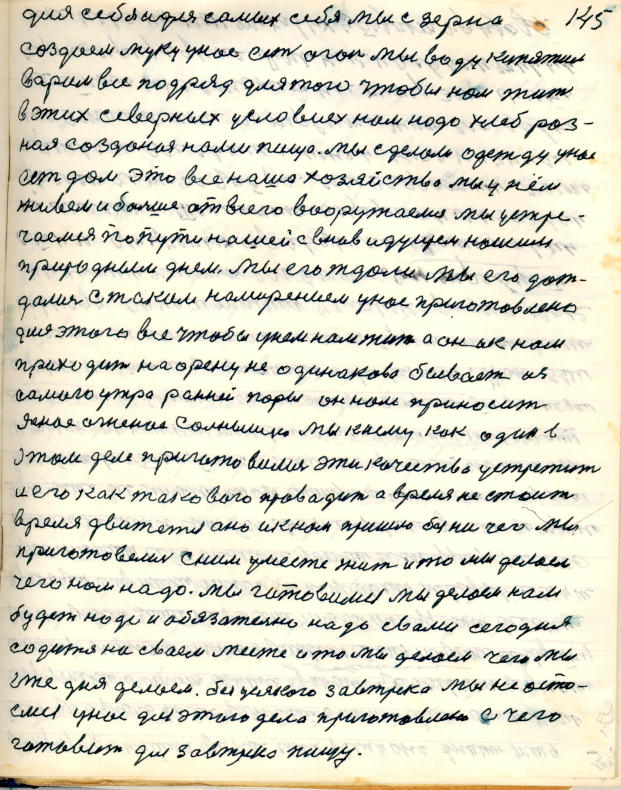 для себя и для самих себя мы с зерна 145
создаем муку унас сеть огон мы воду кипятим
варим все подряд для того чтобы нам жит
в этих северных условиех нам надо хлеб раз-
ная созданая нами пища. мы сделали одежду унас
сеть дом это все наша хозяйство мы у нём
живем и больше от всего вооружаемся мы устре-
чаемся по пути нашей с внов идущем нашим
природным днем. Мы его ждали мы его дож-
дались с таком намерением унас приготовлено
для этого все чтобы унем нам жит а он ок нам
приходит на арену не одинаково бывает из
самого утра ранней поры он нам приносит
ясное огненое солнышко мы к нему как один в
этом деле приготовился эти качества устретит
и его как такового провадит а время не стоит
время движется оно и к нам пришло бы ни чего мы
приготовелись с ним уместе жит и то мы делаем
чего нам надо. мы готовимся мы делаем нам
будет надо и обязателно надо с вами сегодня
содится на своем месте и то мы делаем чего мы
уже дня делаем. без усякого завтрека мы не оста-
емся унас для этого дела приготовлено с чего
готовят для завтрека пищу.